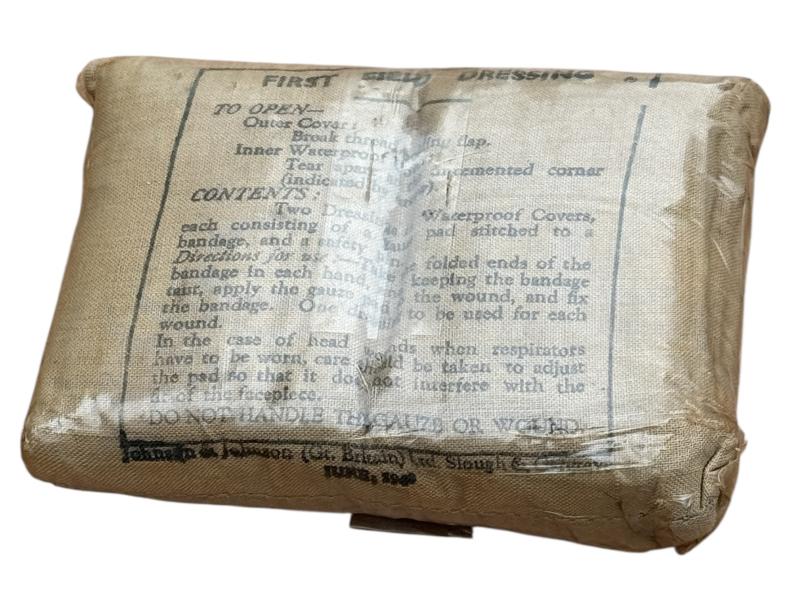 FIRST FIELD DRESSING
TO OPEN—
Outer Cover:
Break thread flap.
Inner Waterproof
Tear apart uncemented corner
(indicated
CONTENTS:
Two Dressings Waterproof Covers,
each consisting of a pad stitched to a
bandage, and a safety pin.
Directions for use:— Take folded ends of the
bandage in each hand, keeping the bandage
taut, apply the gauze pad the wound, and fix
the bandage. One to be used for each
wound.
In the case of head wounds when respirators
have to be worn, care should be taken to adjust
the pad so that it does not interfere with the
fit of the facepiece.
DO NOT HANDLE THE GAUZE OR WOUND.
Johnson & Johnson (Gt. Britain) Ltd. Slough &
JUNE, 1940